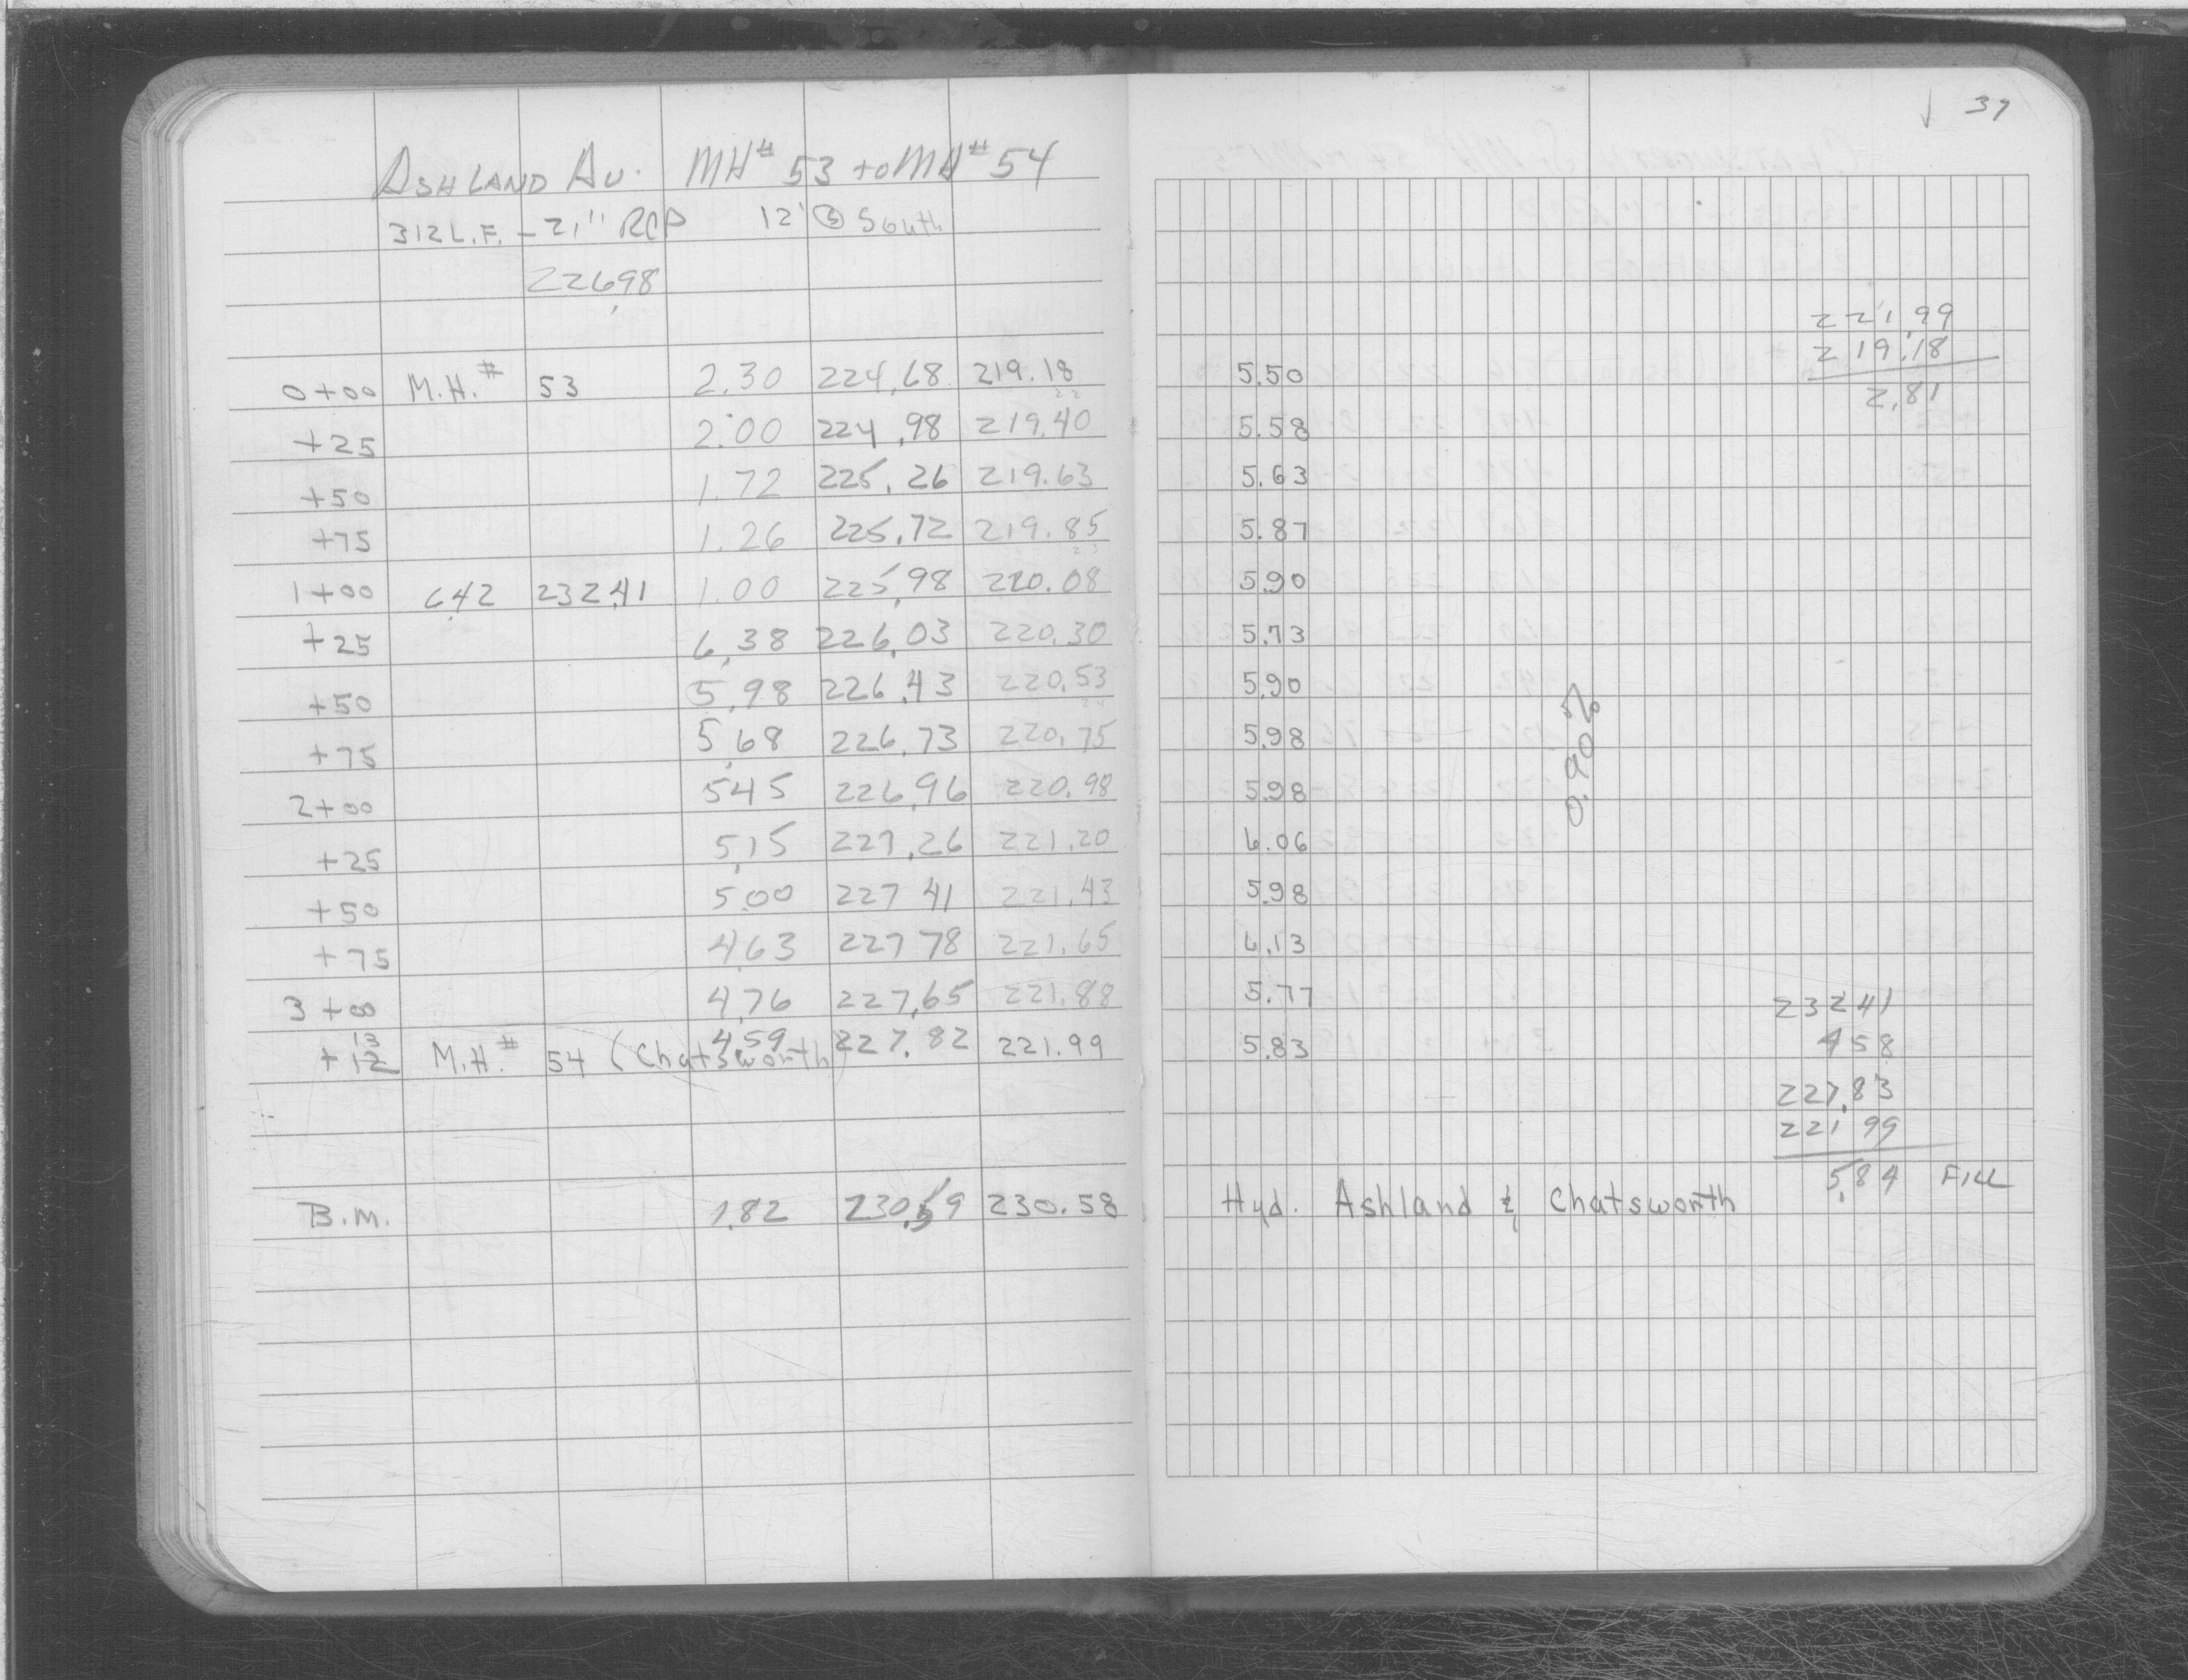 37
ASHLAND AV. MH# 53 to MH# 54
312 L.F. - 21" RCP 12' South
226.98
0+00 M.H.# 53 2.30 224.68 219.18 5.50
22
+25 2.00 224.98 219.40 5.58
+50 1.72 225.26 219.63 5.63
+75 1.26 225.72 219.85 5.87
23
1+00 6.42 232.41 1.00 225.98 220.08 5.90
+25 6.38 226.03 220.30 5.73
+50 5.98 226.43 220.53 5.90
+75 5.68 226.73 220.75 5.98
2+00 5.45 226.96 220.98 5.98
+25 5.15 227.26 221.20 6.06
+50 5.00 227 41 221.43 5.98
+75 4.63 227 78 221.65 6.13
3+00 4.76 227.65 221.88 5.77
13
+12 M.H.# 54 (Chatsworth) 4.59 227.82 221.99 5.83
B.M. 1.82 230.59 230.58 Hyd. Ashland & Chatsworth
221.99
219.18
2.81
0.90%
232 41
4 58
227.83
221 99
5.84 FILL